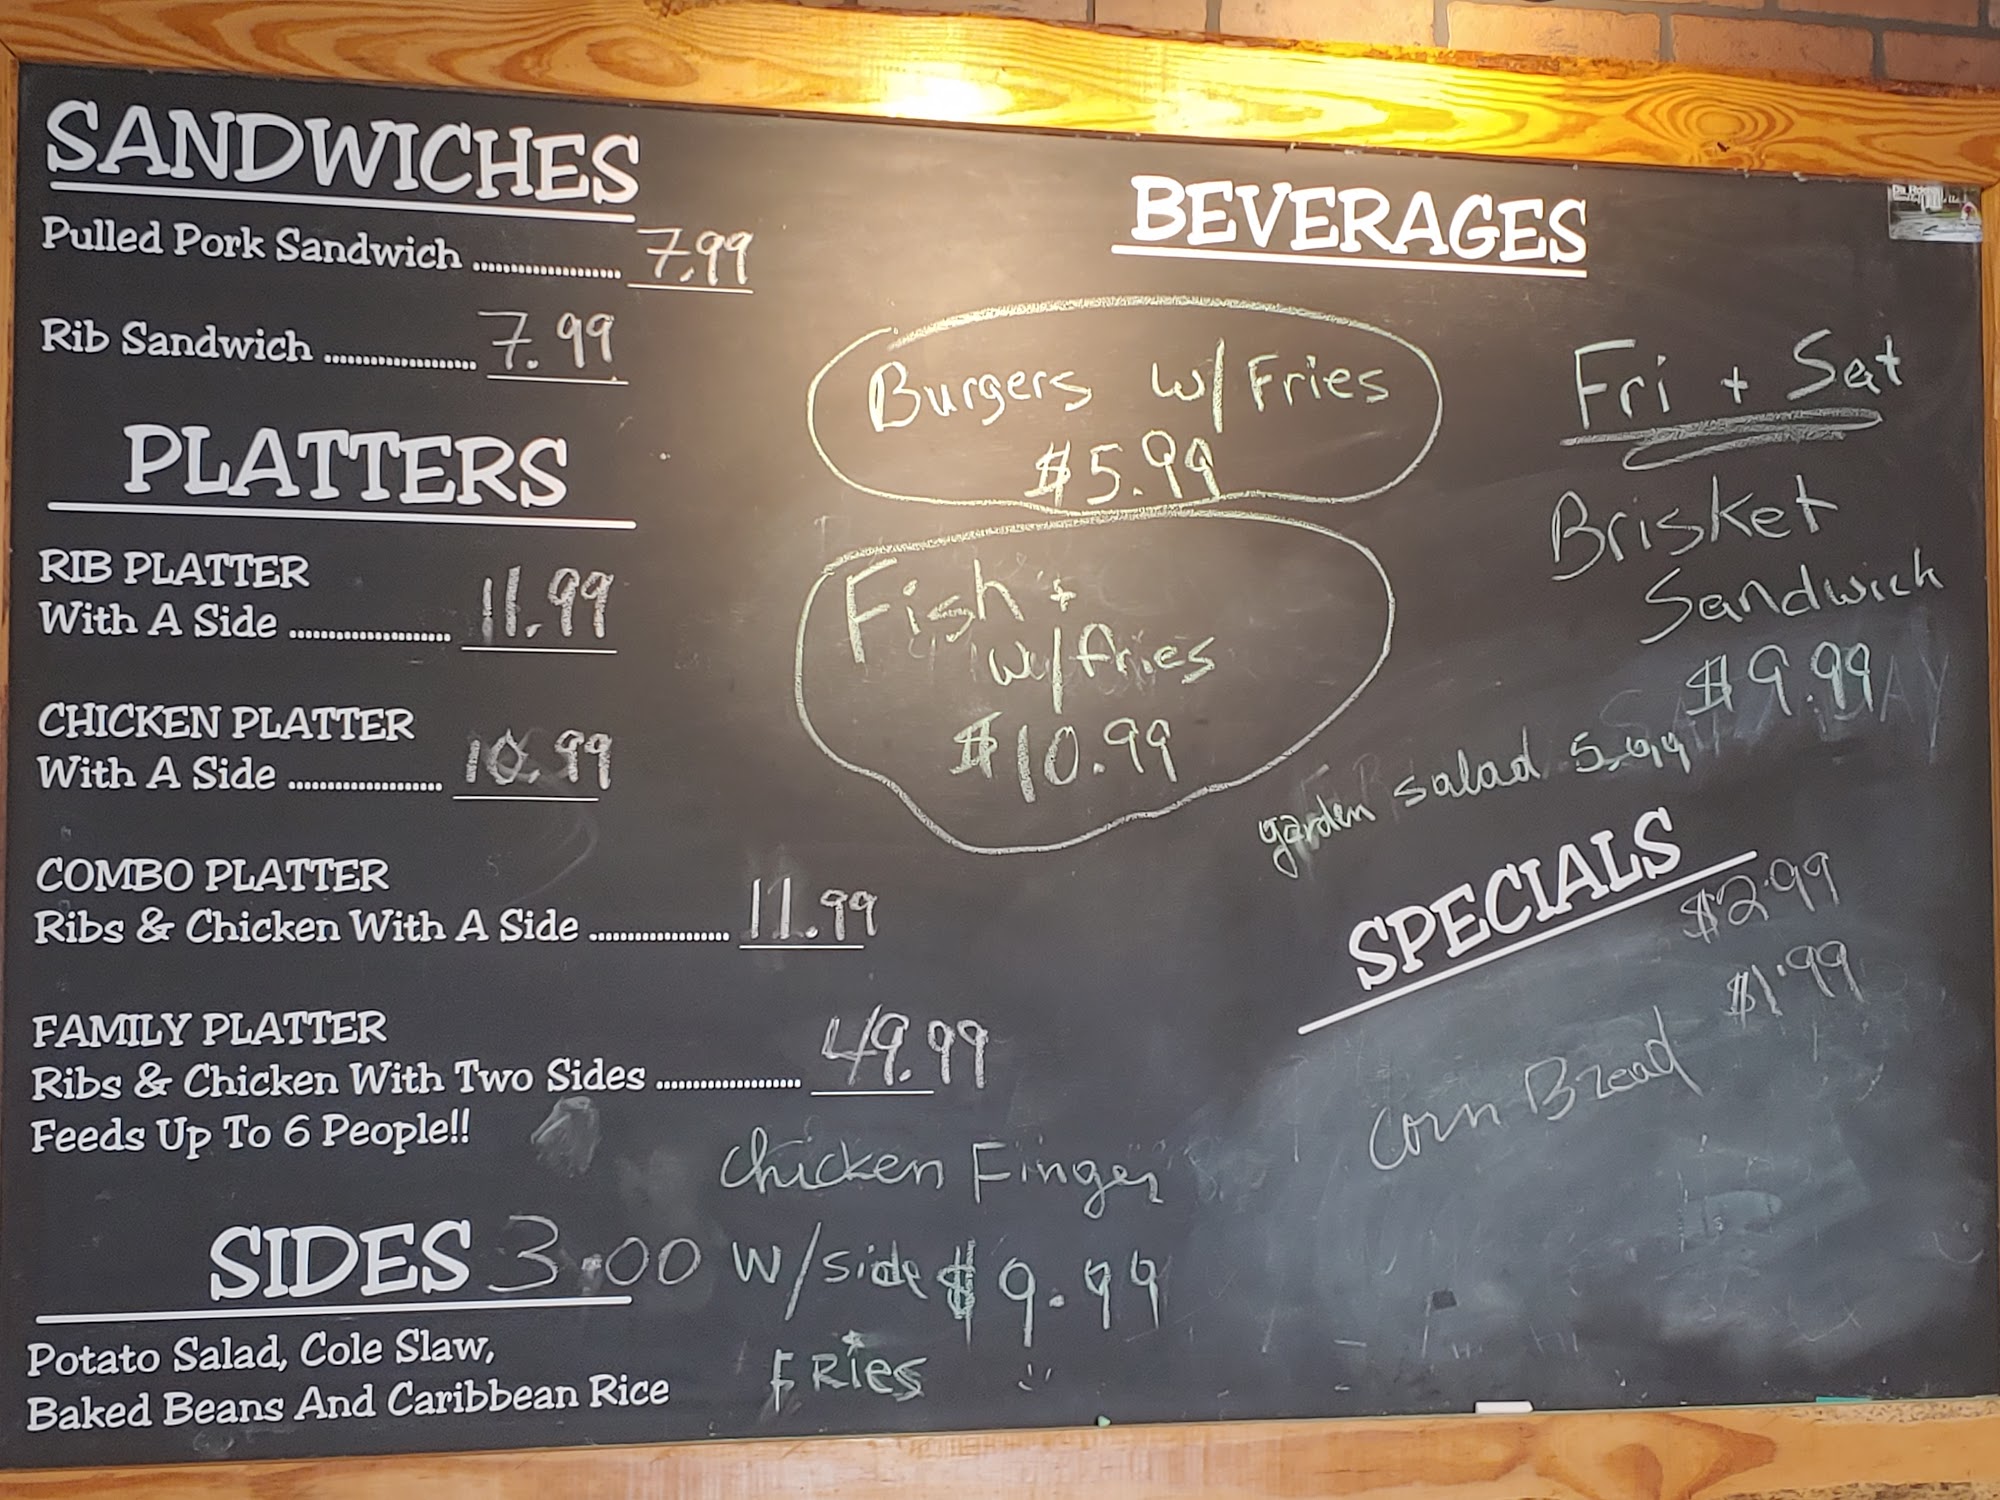 SANDWICHES
Pulled Pork Sandwich ..................... 7.99
Rib Sandwich ..................... 7.99
PLATTERS
RIB PLATTER
With A Side ..................... 11.99
CHICKEN PLATTER
With A Side ..................... 10.99
COMBO PLATTER
Ribs & Chicken With A Side ................... 11.99
FAMILY PLATTER
Ribs & Chicken With Two Sides ................... 49.99
Feeds Up To 6 People!!
SIDES 3.00
Potato Salad, Cole Slaw,
Baked Beans And Caribbean Rice
Chicken Finger
w/side $9.99
FRies
BEVERAGES
Burgers w/Fries
$5.99
Fish +
w/fries
$10.99
Fri + Sat
Brisket
Sandwich
$9.99
garden salad 5.99
SPECIALS
$2.99
$1.99
Corn Bread